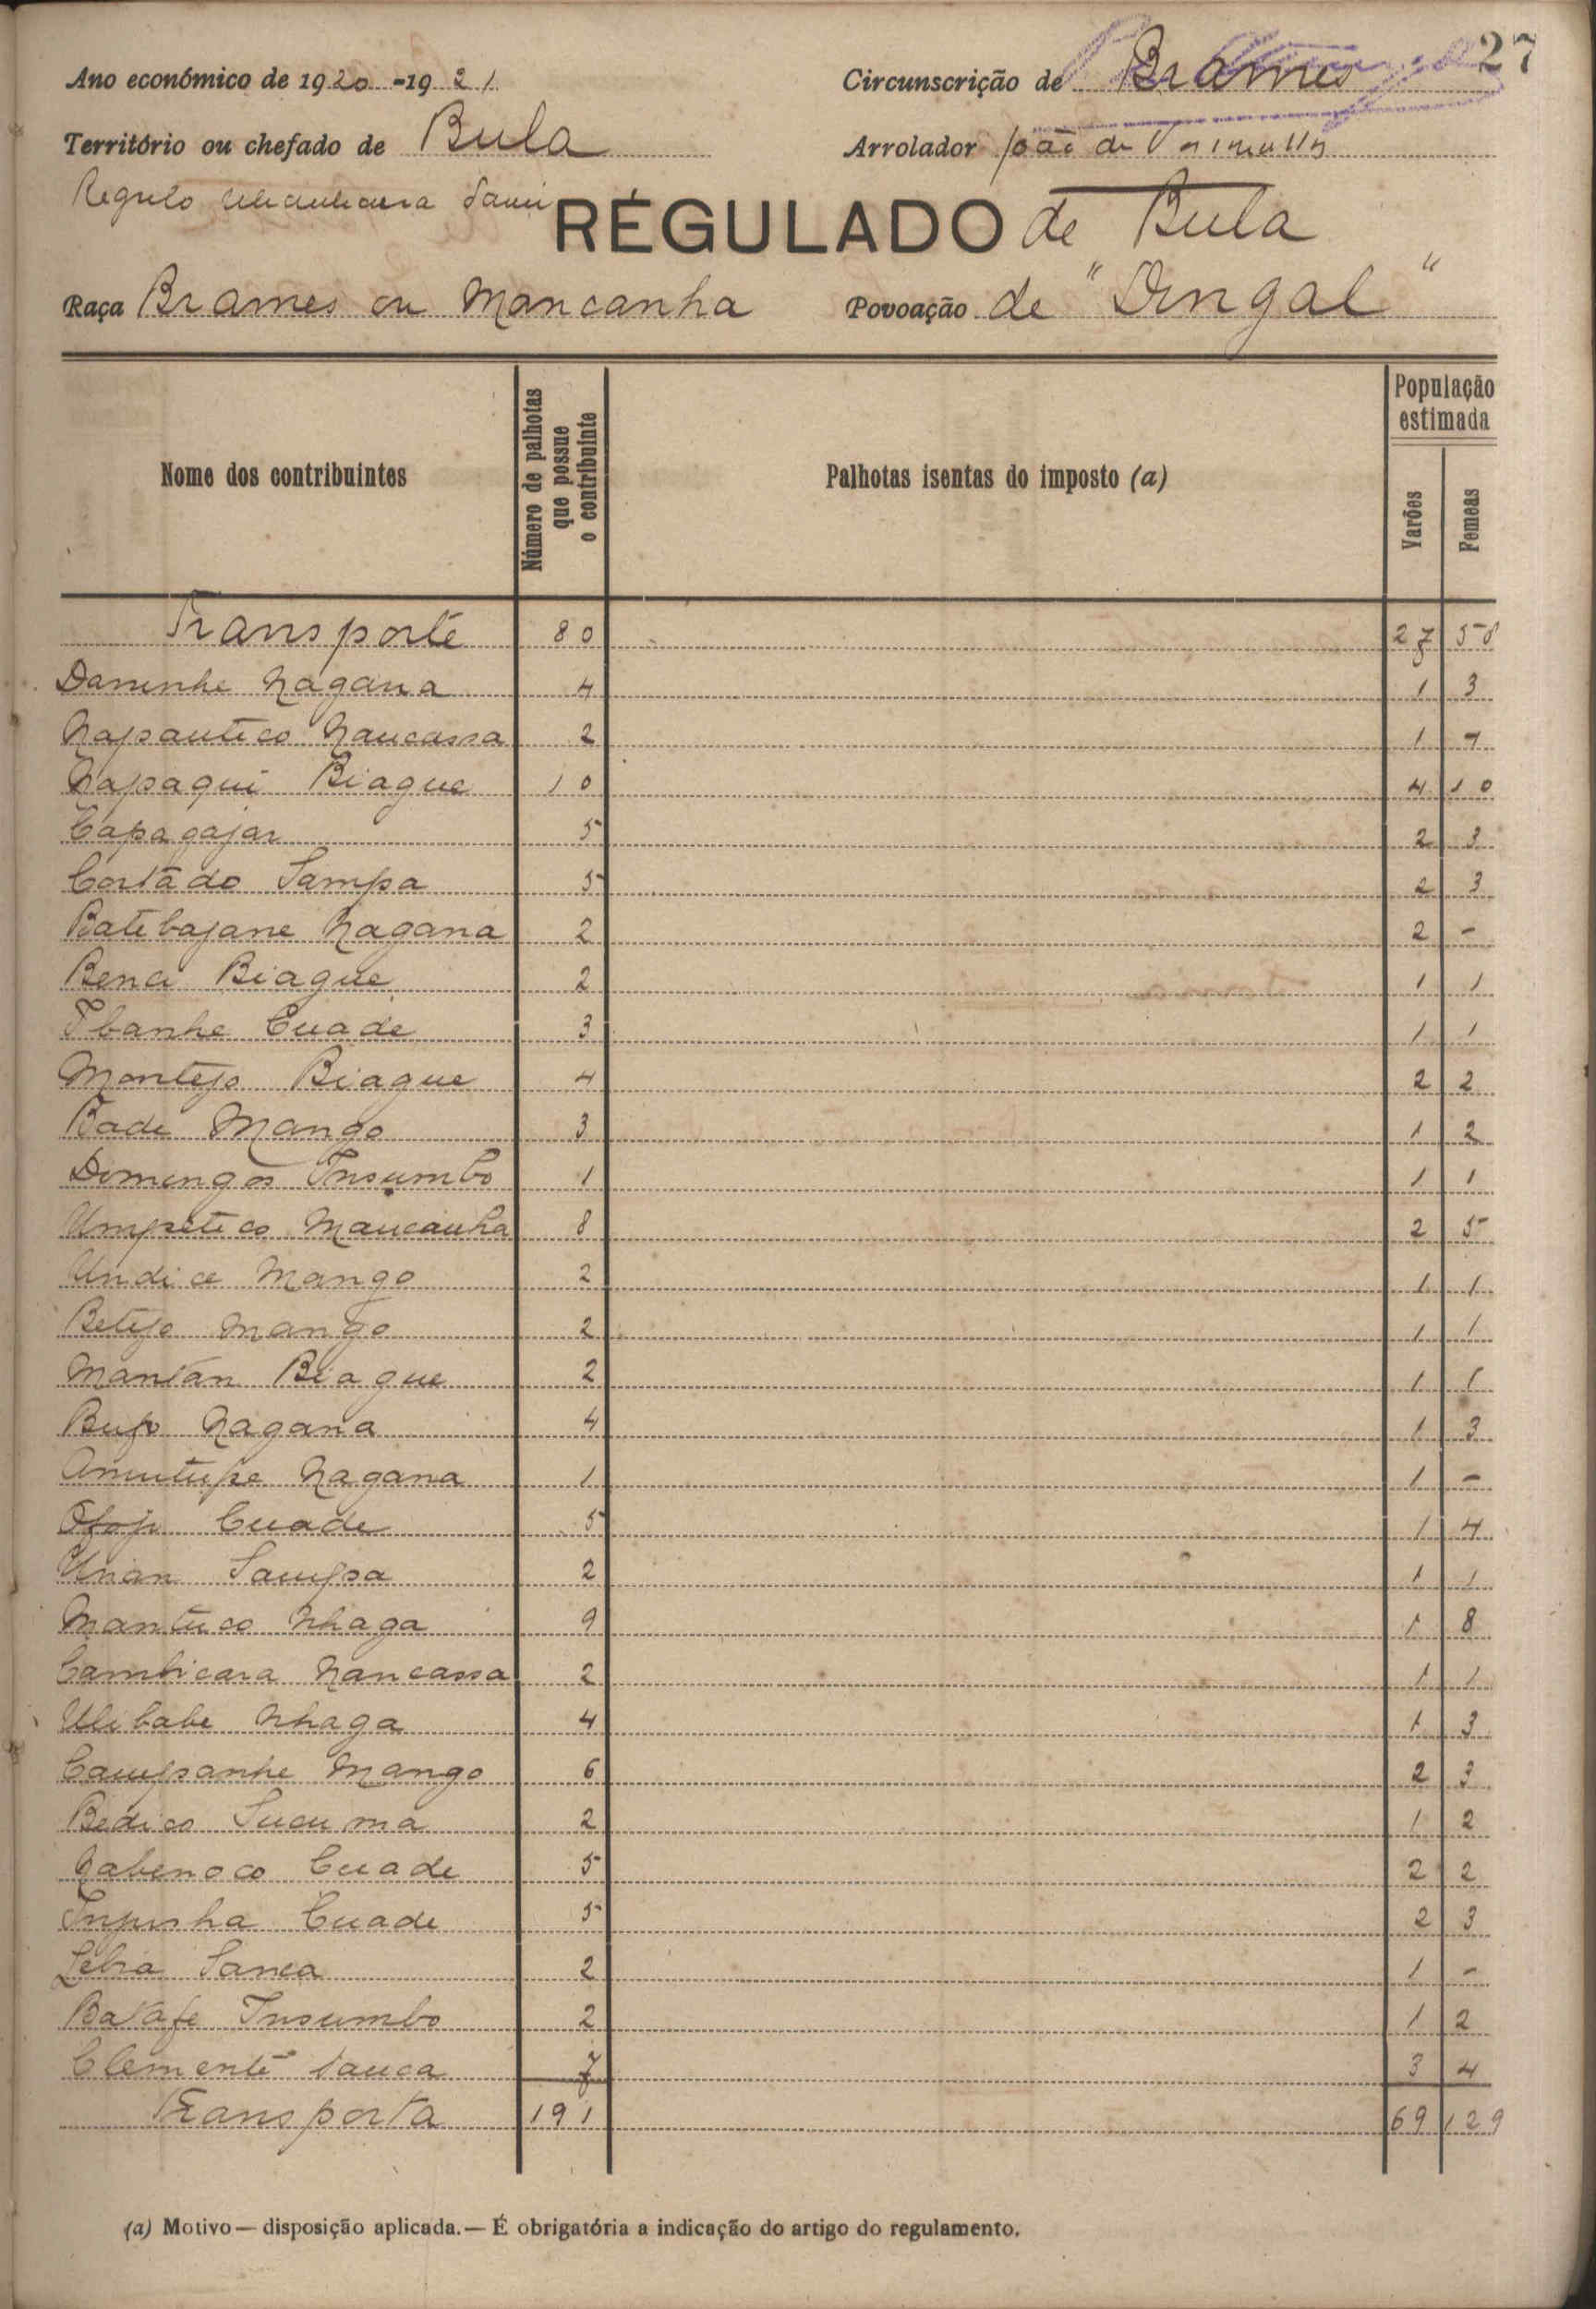 27
Ano económico de 1920-1921
Circunscrição de Brames
Território ou chefado de Bula
Arrolador João de
Regulo
RÉGULADO de Bula
Raça Brames ou Mancanha
Povoação de "Dingal"
Nome dos contribuintes
Número de palhotas que possue o contribuinte
Palhotas isentas do imposto (a)
População estimada
Varões
Femeas
Transporte 80 27 58
Daninhe Nagana 4 1 3
Napantico Nancassa 2 1 7
Napaqui Biague 10 4 10
Capagajar 5 2 3
Cortado Sampa 5 2 3
Batebajane Nagana 2 2 -
Benci Biague 2 1 1
Ibanhe Cuade 3 1 1
Montejo Biague 4 2 2
Bade Mango 3 1 2
Domingos Insumbo 1 1 1
Umpetico Mancanha 8 2 5
Undice Mango 2 1 1
Betejo Mango 2 1 1
Mantan Biague 2 1 1
Bufo Nagana 4 1 3
Amutupe Nagana 1 1 -
Cuade 5 1 4
Unan Sampa 2 1 1
Mantuco Nhaga 9 1 8
Cambicara Nancassa 2 1 1
Ulibabe Nhaga 4 1 3
Campanhe Mango 6 2 3
Bedico Sucuma 2 1 2
Nabenoco Cuade 5 2 2
Cuade 5 2 3
Lebia Sanca 2 1 -
Batafe Insumbo 2 1 2
Clemente Sanca 7 3 4
Transporta 191 69 129
(a) Motivo — disposição aplicada. — É obrigatória a indicação do artigo do regulamento.